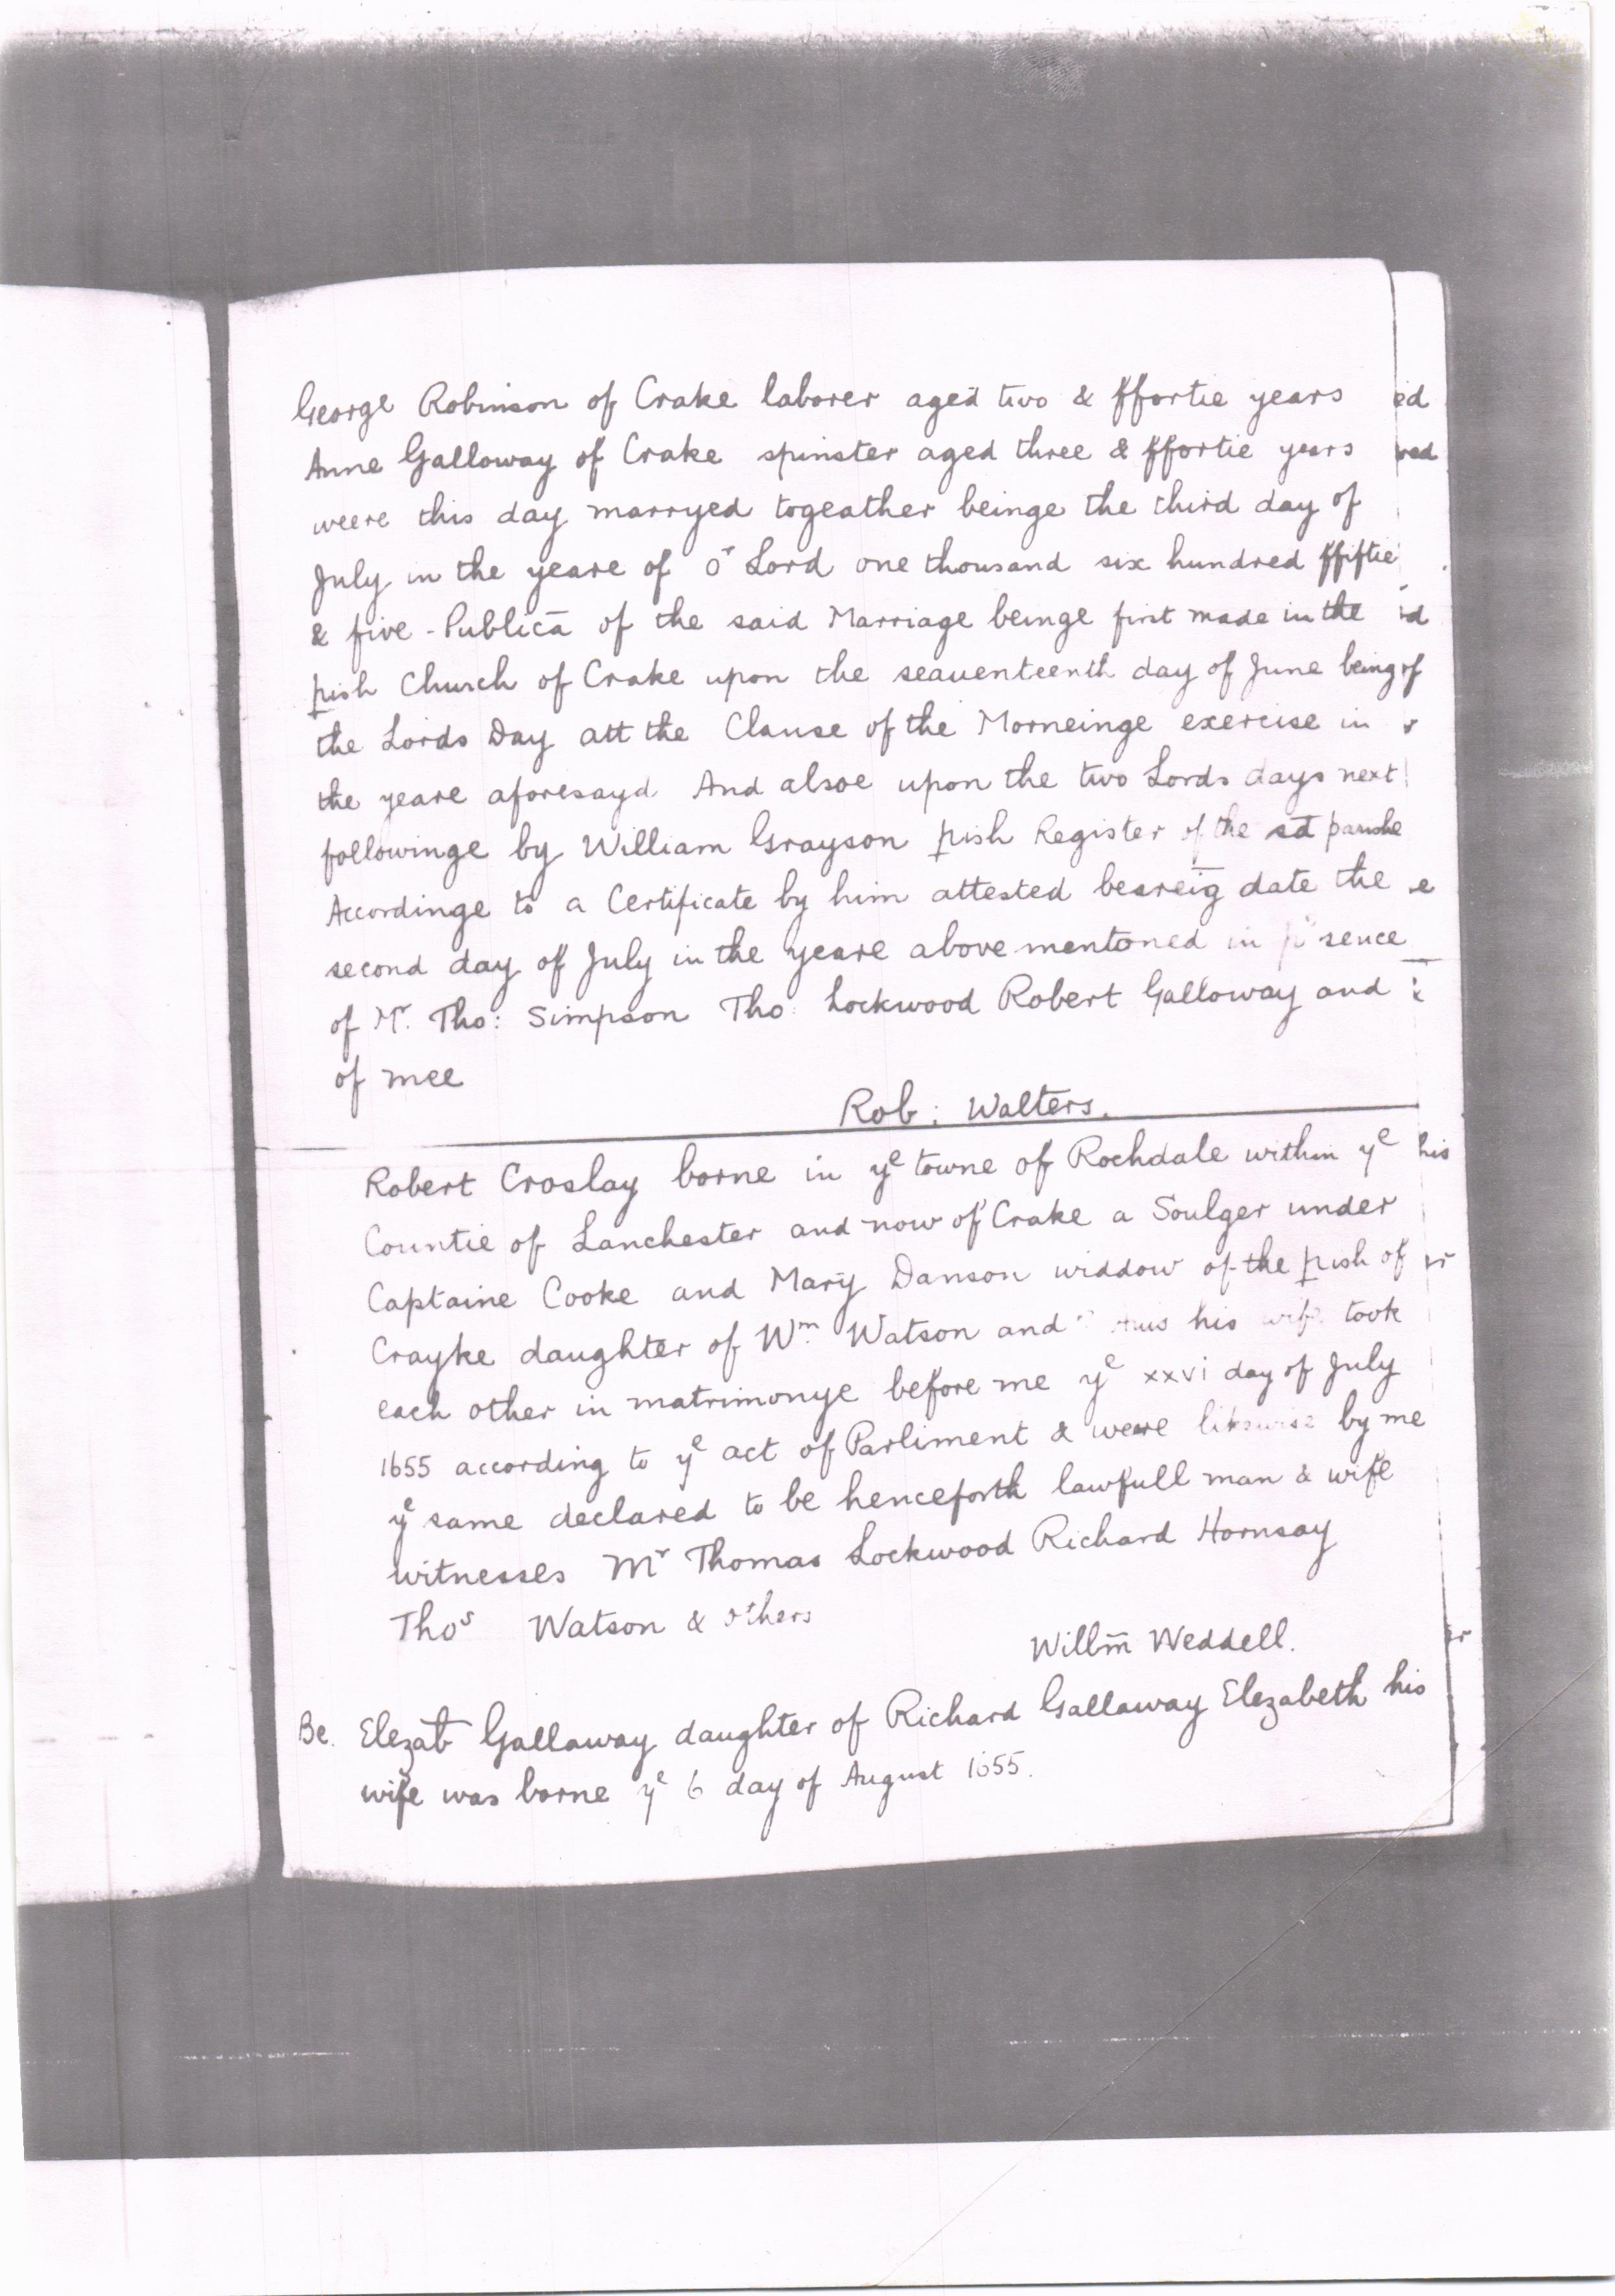 George Robinson of Crake laborer aged two & ffortie years
Anne Galloway of Crake spinster aged three & ffortie years
weere this day marryed togeather beinge the third day of
July in the yeare of oʳ Lord one thousand six hundred ffiftie
& five - Publicā of the said Marriage beinge first made in the
pish Church of Crake upon the seauenteenth day of June being
the Lords Day att the Clause of the Morneinge exercise in
the yeare aforesayd And alsoe upon the two Lords days next
followinge by William Grayson pish Register of the sd parishe
Accordinge to a Certificate by him attested beareig date the
second day of July in the yeare above mentoned in psence
of Mʳ. Tho: Simpson Tho: Lockwood Robert Galloway and
of mee
Rob: Walters.
Robert Croslay borne in yᵉ towne of Rochdale within yᵉ
Countie of Lanchester and now of Crake a Soulger under
Captaine Cooke and Mary Danson widdow of the pish of
Crayke daughter of Wᵐ. Watson and his wife took
each other in matrimonye before me yᵉ xxvi day of July
1655 according to yᵉ act of Parliment & weare likewise by me
yᵉ same declared to be henceforth lawfull man & wife
witnesses Mʳ Thomas Lockwood Richard Hornsay
Thoˢ Watson & others
Willm̄ Weddell.
Be. Elezab Gallaway daughter of Richard Gallaway Elezabeth his
wife was borne yᵉ 6 day of August 1655.